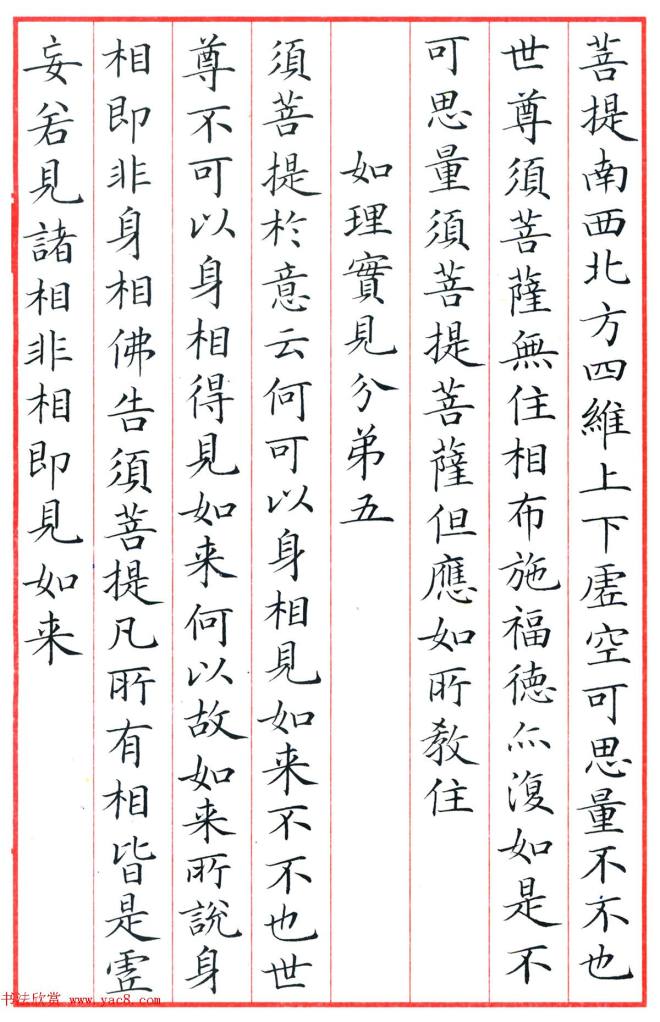 菩提南西北方四維上下虛空可思量不不也
世尊須菩薩無住相布施福德亦復如是不
可思量須菩提菩薩但應如所教住
如理實見分第五
須菩提於意云何可以身相見如来不不也世
尊不可以身相得見如来何以故如来所說身
相即非身相佛告須菩提凡所有相皆是虛
妄若見諸相非相即見如来
书法欣赏 www.yac8.com